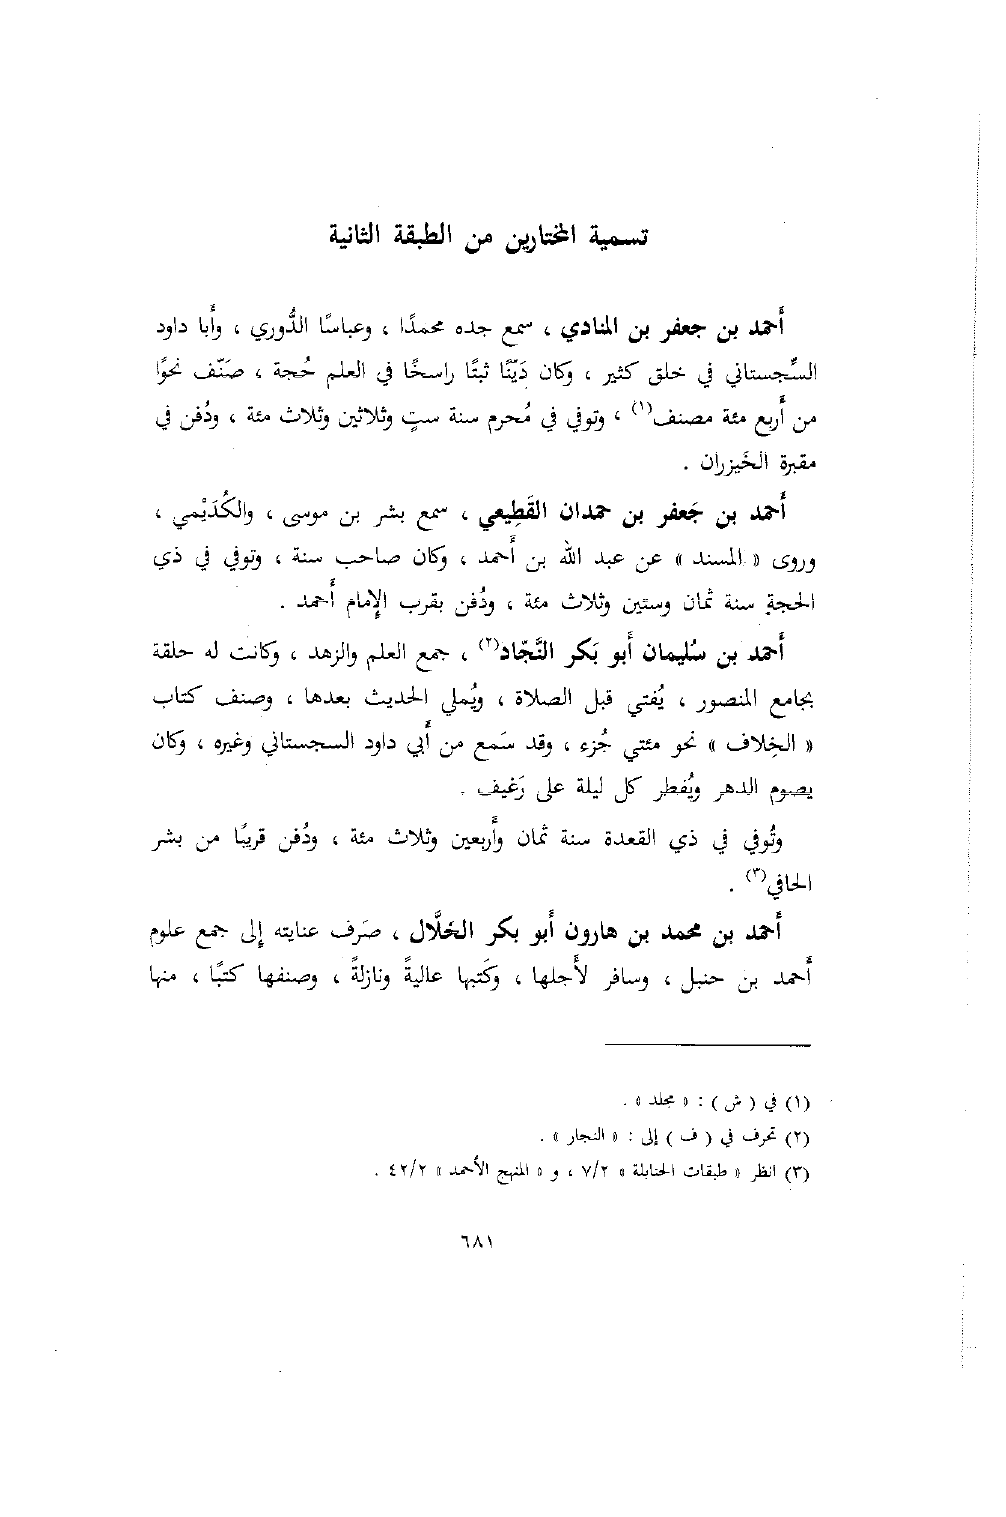 تسمية المختارين من الطبقة الثانية
أحمد بن جعفر بن المنادي ، سمع جده محمدًا ، وعباسًا الدُّوري ، وأبا داود
السِّجستاني في خلق كثير ، وكان دَيّنًا ثبتًا راسخًا في العلم حُجة ، صَنّف نحوًا
من أربع مئة مصنف(١) ، وتوفي في مُحرم سنة ستٍ وثلاثين وثلاث مئة ، ودُفن في
مقبرة الخَيزران .
أحمد بن جَعفر بن حمدان القَطِيعي ، سمع بشر بن موسى ، والكُدَيْمي ،
وروى « المسند » عن عبد الله بن أحمد ، وكان صاحب سنة ، وتوفي في ذي
الحجةِ سنة ثمان وستين وثلاث مئة ، ودُفن بقرب الإمام أحمد .
أحمد بن سُليمان أبو بَكر النَّجّاد(٢) ، جمع العلم والزهد ، وكانت له حلقة
بجامع المنصور ، يُفتي قبل الصلاة ، ويُملي الحديث بعدها ، وصنف كتاب
« الخِلاف » نحو مئتي جُزء ، وقد سَمع من أبي داود السجستاني وغيره ، وكان
يصوم الدهر ويُفطر كل ليلة على رَغيف .
وتُوفي في ذي القعدة سنة ثمان وأربعين وثلاث مئة ، ودُفن قريبًا من بشر
الحافي(٣) .
أحمد بن محمد بن هارون أبو بكر الخلَّال ، صَرف عنايته إلى جمع علوم
أحمد بن حنبل ، وسافر لأجلها ، وكَتبها عاليةً ونازلةً ، وصنفها كتبًا ، منها
(١) في ( ش ) : « مجلد » .
(٢) تحرف في ( ف ) إلى : « النجار » .
(٣) انظر « طبقات الحنابلة » ٧/٢ ، و « المنهج الأحمد » ٤٢/٢ .
٦٨١